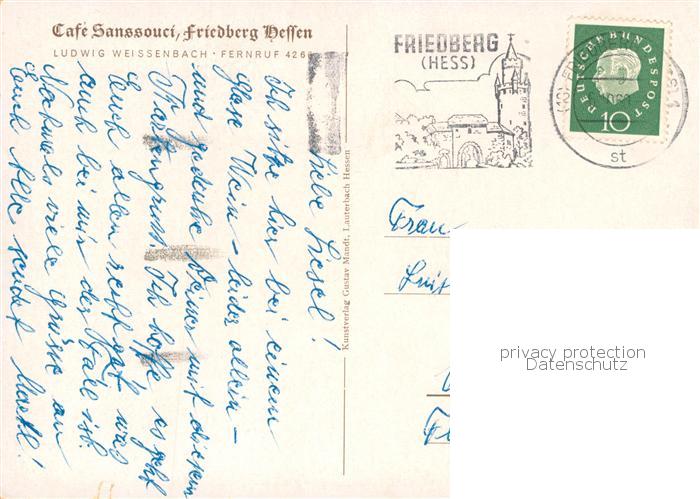 Café Sanssouci, Friedberg Hessen
LUDWIG WEISSENBACH · FERNRUF 426
Liebe Liesel!
Ich sitze hier bei einem
Glase Wein – leider allein –
und gedenke Deiner mit diesem
Kartengruß. Ich hoffe es geht
Euch allen recht gut, was
auch bei mir der Fall ist.
Nochmals viele Grüße an
Euch Alle sendet
Kunstverlag Gustav Mandt, Lauterbach Hessen
FRIEDBERG
(HESS)
DEUTSCHE BUNDESPOST
10
(16)
st
Frau
privacy protection
Datenschutz